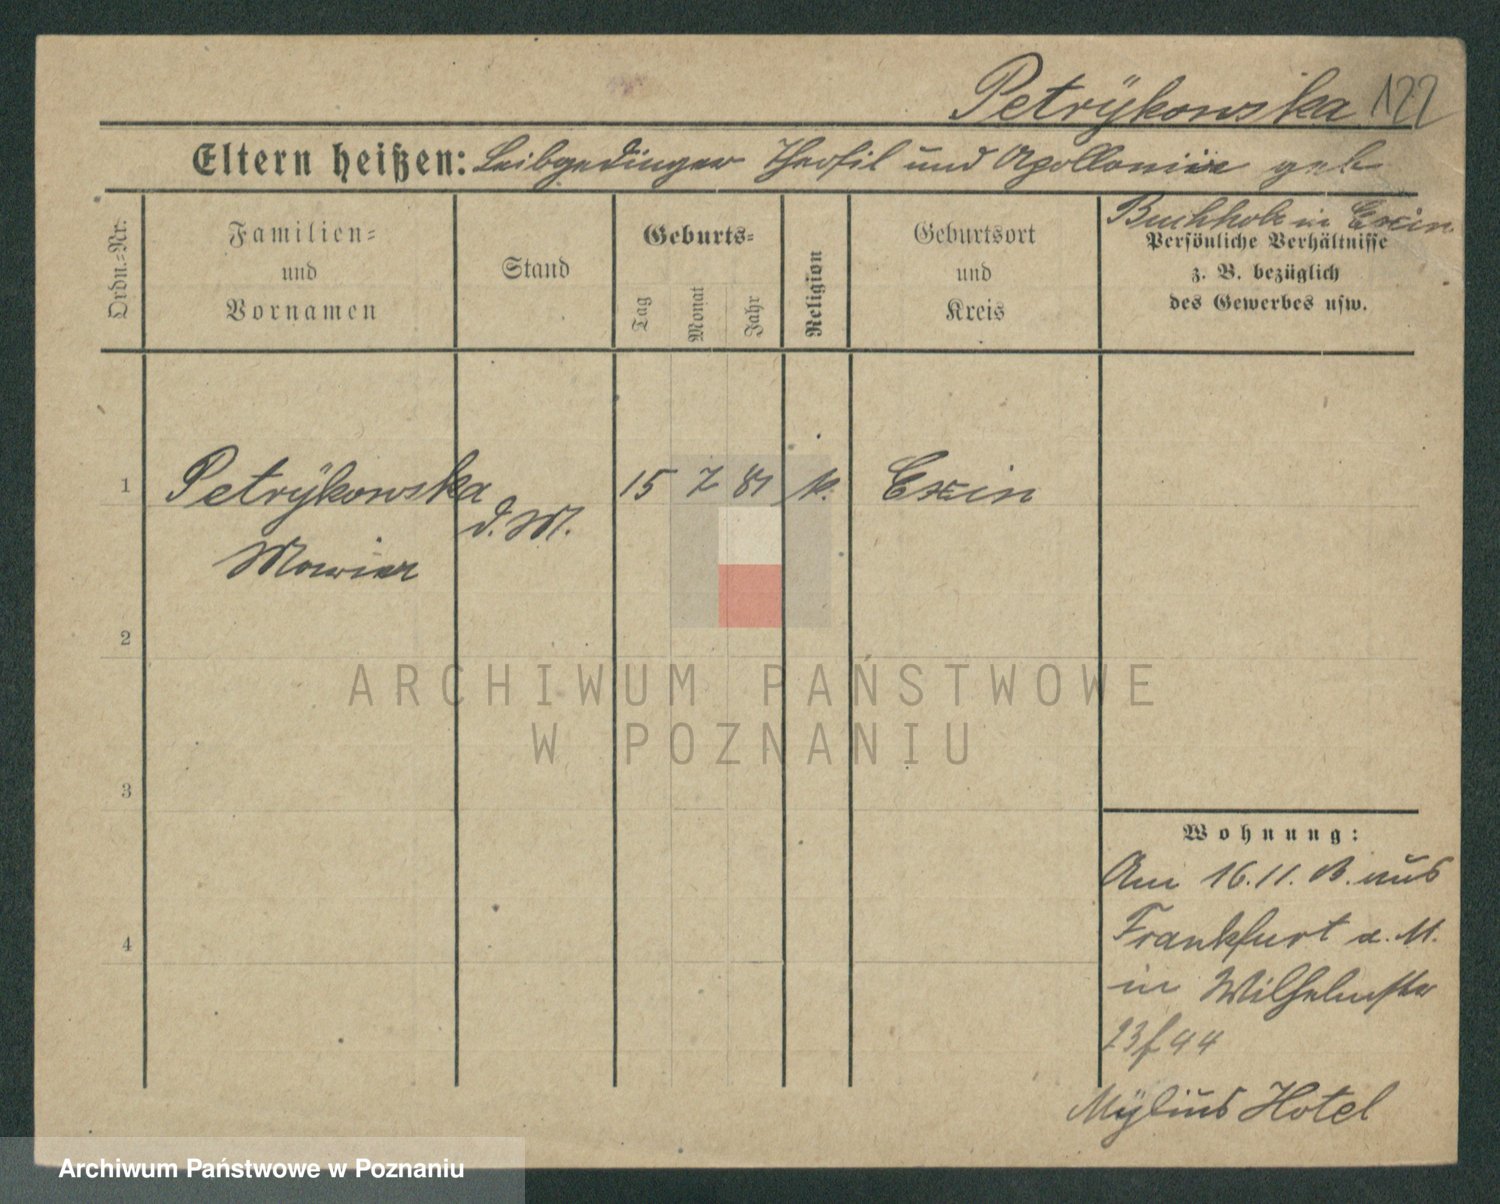 Petrÿkowska 122
Eltern heißen: Leibgedinger Theofil und Apollonia geb
Buchholz in Exin
Ordn.-Nr.
Familien-
und
Vornamen
Stand
Geburts-
Tag
Monat
Jahr
Religion
Geburtsort
und
Kreis
Persönliche Verhältnisse
z. B. bezüglich
des Gewerbes usw.
1 Petrÿkowska 15 7 81 k. Exin
d. M.
Maria
2
ARCHIWUM PAŃSTWOWE
W POZNANIU
3
Wohnung:
Am 16.11. aus
4
Frankfurt a. M.
in Wilhelmstr
23 f 44
Mÿlius Hotel
Archiwum Państwowe w Poznaniu